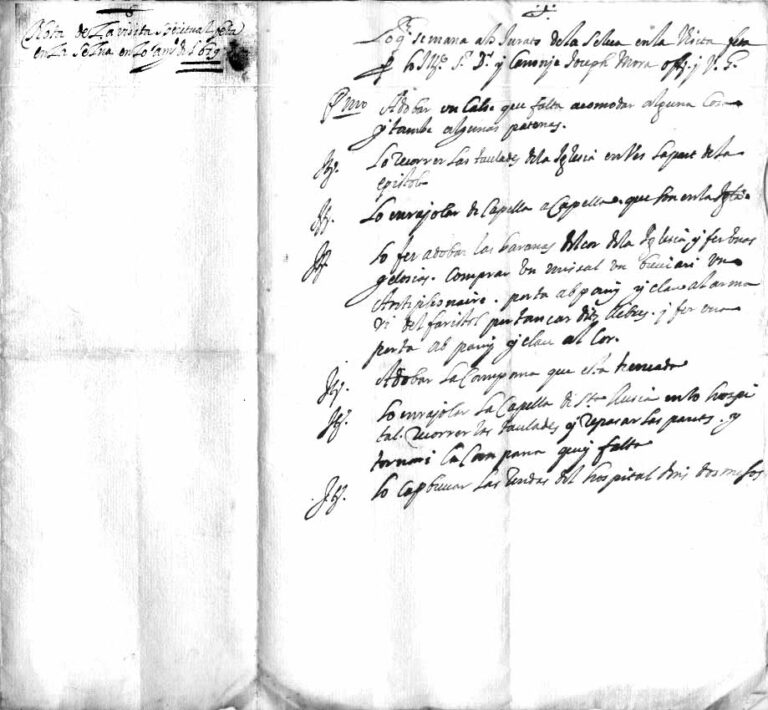 Nota de La visita spiritual feta
en La Selva en Lo any de 1679
Lo q̃ semana als Jurats de la Selva en la Visita feta
per lo Sr. Dr. y Canonje Joseph Mora offl. y V. G.
Pmo Adobar un Calse que falta acomodar alguna Cosa
y tambe algunas patenas.
Itt. Lo recorrer Las taulades de la Iglesia en Ves La part de la
epistola
Itt. Lo enrajolar de Capella a Capella que son en la Igla.
Itt. Lo fer adobar las baranas del cor de la Iglesia y fer unas
gelosias. Comprar un missal un breviari un
Antiphonaire. porta ab pany y clau al arma
ri del faristol per tancar dits llibres. y fer una
porta ab pany y clau al Cor.
Itt. Adobar La Campana que esta trencada
Itt. Lo enrajolar La Capella de Sta. Llusia en lo hospi
tal. recorrer las taulades y reparar las parets. y
tornari La Campana que y falta
Itt. Lo Capbrevar Las rendas del hospital dins dos mesos